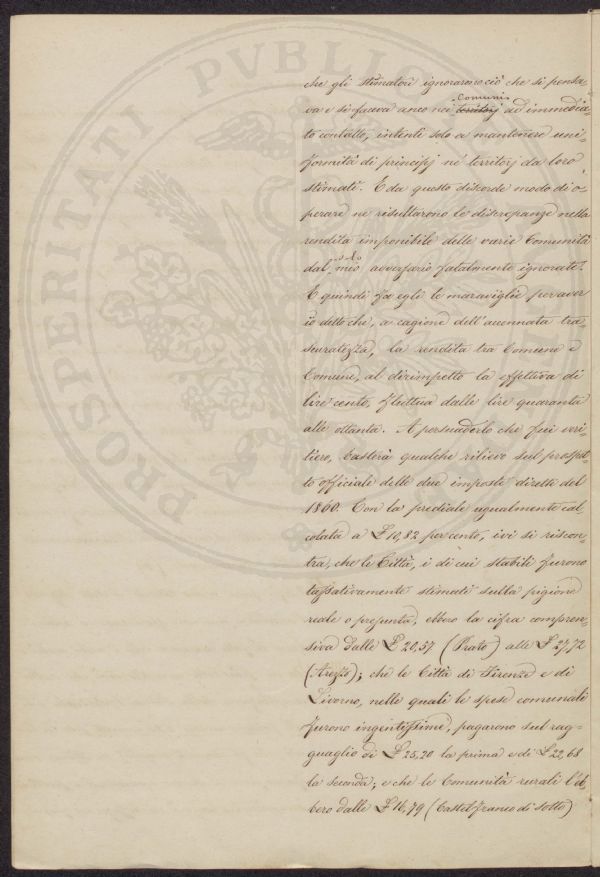 che gli stimatori ignorarono ciò che si pensa-
va e si faceva anco nei territorj Comunis ad immedia-
to contatto, intenti solo a mantenere uni-
formità di principj nè territorj da loro
stimati. E da questo discorde modo di o-
perare ne risultarono le discrepanze nella
rendita imponibile delle varie Comunità
dal mio avversario fatalmente ignorate.
E quindi fa egli le maraviglie per aver
io detto che, a cagione dell'accennata tra-
scuratezza, la rendita tra Comune e
Comune, al dirimpetto la effettiva di
lire cento, fluttua dalle lire quaranta
alle ottanta. A persuaderlo che fui veri-
tiero, basterà qualche rilievo sul prospet-
to officiale delle due imposte dirette del
1860. Con la prediale ugualmente cal-
colata a £ 10,82 per cento, ivi si riscon-
tra, che le Città, i di cui stabili furono
tassativamente stimati sulla pigione
reale o presunta, ebbero la cifra compren-
siva dalle £ 20,57 (Prato) alle £ 27,72
(Arezzo); che le Città di Firenze e di
Livorno, nelle quali le spese comunali
furono ingentissime, pagarono sul rag-
guaglio di £ 25,20 la prima e di £ 22,68
la seconda; e che le Comunità rurali l'eb-
bero dalle £ 16,79 (Castelfranco di Sotto)
PROSPERITATI PVBLIC